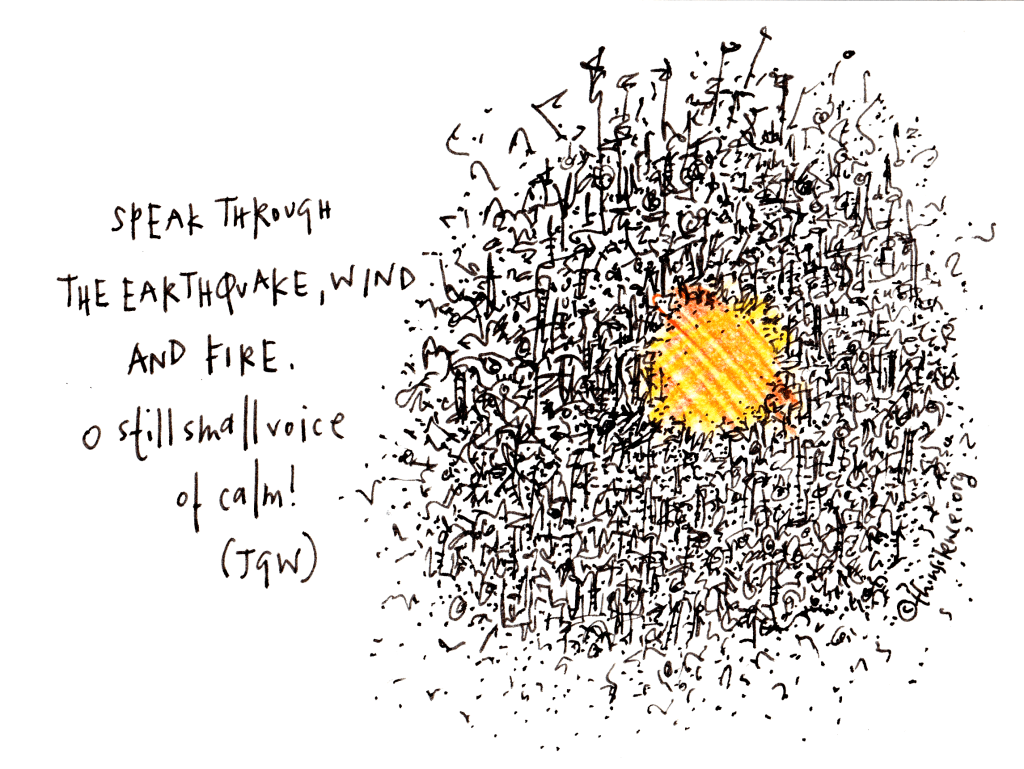 SPEAK THROUGH
THE EARTHQUAKE, WIND
AND FIRE.
o still small voice
of calm!
(JGW)